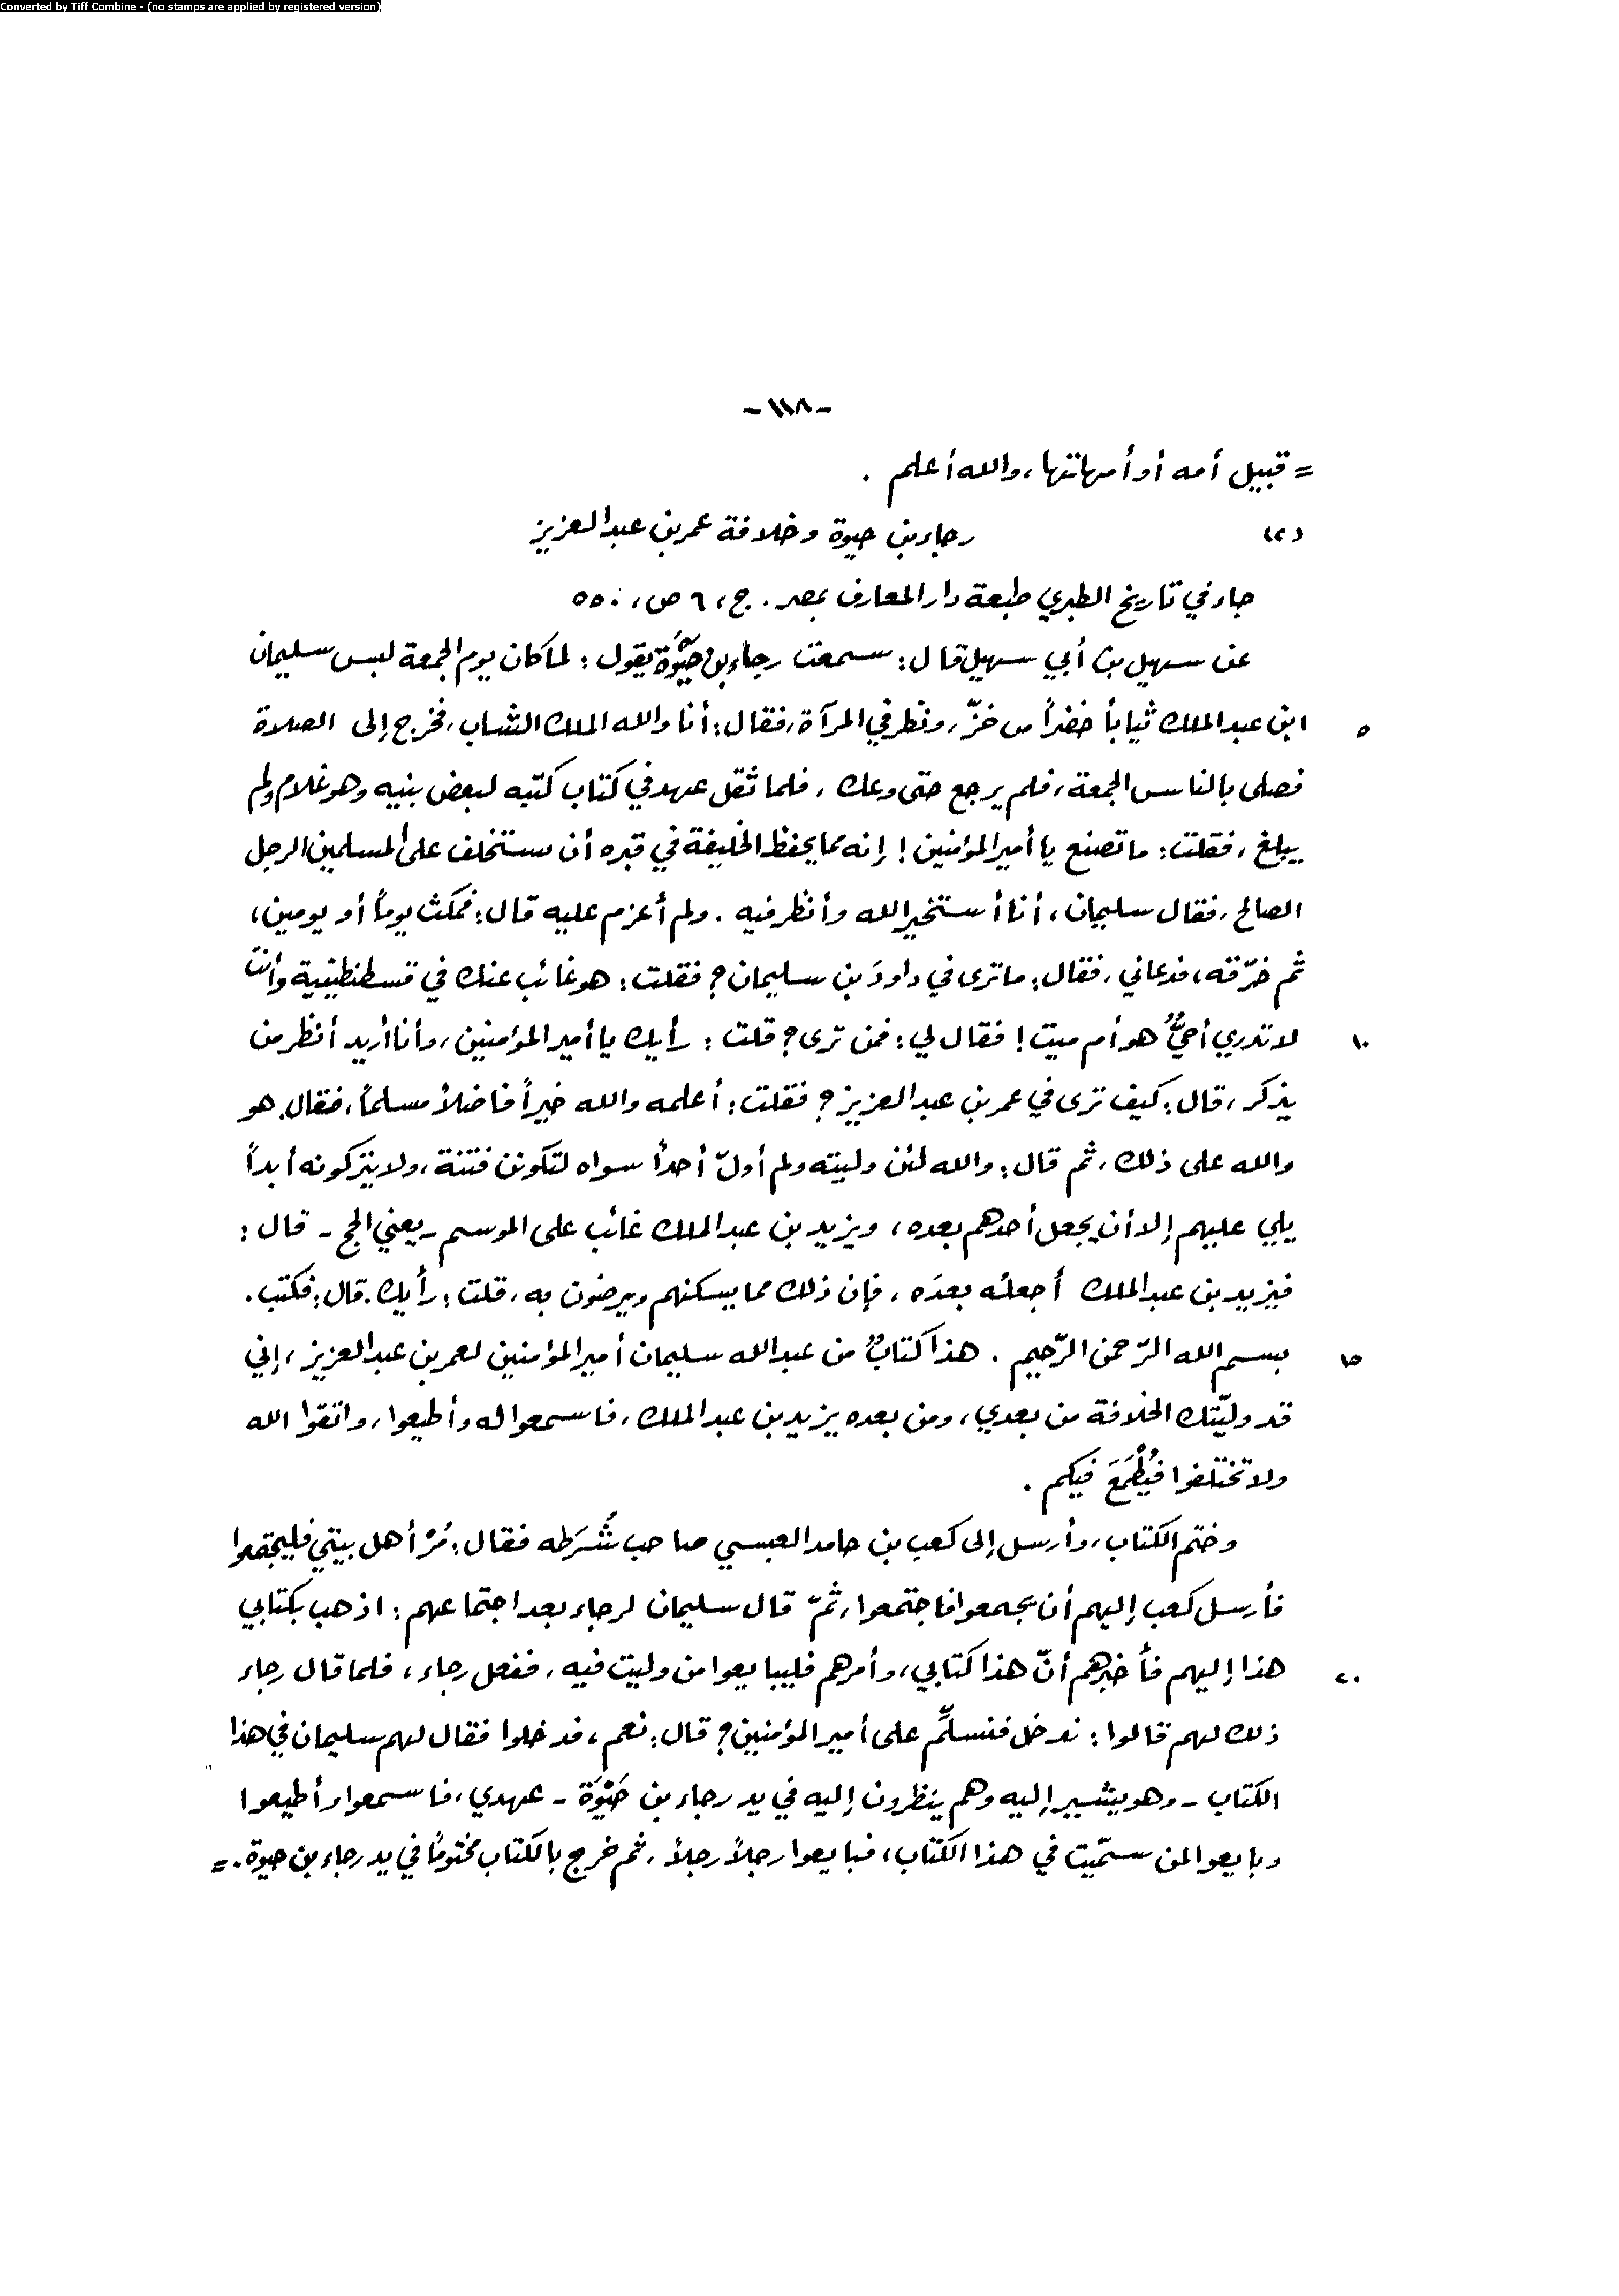 Converted by Tiff Combine - (no stamps are applied by registered version)
-١١٨-
= قبيل أمه أو أمهاتها، والله أعلم .
(٢) رجاء بن حيوة وخلافة عمر بن عبد العزيز
جاء في تاريخ الطبري طبعة دار المعارف بمصر . ج، ٦ ص، ٥٥٠
عن سهيل بن أبي سهيل قال: سمعت رجاء بن حَيْوَة يقول: لما كان يوم الجمعة لبس سليمان
٥ ابن عبد الملك ثياباً خضراً من خزّ، ونظر في المرآة، فقال: أنا والله الملك الشاب، فخرج إلى الصلاة
فصلى بالناس الجمعة، فلم يرجع حتى وعك، فلما ثقل عهد في كتاب كتبه لبعض بنيه وهو غلام ولم
يبلغ، فقلت: ما تصنع يا أمير المؤمنين! إنه مما يحفظ الخليفة في قبره أن ستخلف على المسلمين الرجل
الصالح، فقال سليمان، أنا أستخير الله وأنظر فيه . ولم أعزم عليه قال: فمكث يوماً أو يومين،
ثم خرّقه، فدعاني، فقال: ما ترى في داودَ بن سليمان؟ فقلت: هو غائب عنك في قسطنطينية وأنت
١٠ لا تدري أحيٌّ هو أم ميت! فقال لي: فمن ترى؟ قلت: رأيك يا أمير المؤمنين، وأنا أريد أنظر من
يذكر، قال: كيف ترى في عمر بن عبد العزيز؟ فقلت: أعلمه والله خيراً فاضلاً مسلماً، فقال. هو
والله على ذلك، ثم قال: والله لئن وليته ولم أولّ أحداً سواه لتكونن فتنة، ولا يتركونه أبداً
يلي عليهم إلا أن يجعل أحدهم بعده، ويزيد بن عبد الملك غائب على الموسم - يعني الحج - قال:
فيزيد بن عبد الملك أجعله بعدَه، فإن ذلك مما يسكنهم ويرضون به، قلت: رأيك. قال: فكتب.
١٥ بسم الله الرّحمن الرّحيم . هذا كتابٌ من عبد الله سليمان أمير المؤمنين لعمر بن عبد العزيز، إني
قد وليّتك الخلافة من بعدي، ومن بعده يزيد بن عبد الملك، فاسمعوا له وأطيعوا، واتقوا الله
ولا تختلفوا فيُطْمَعَ فيكم .
وختم الكتاب، وأرسل إلى كعب بن حامد العبسي صاحب شُرَطه فقال: مُرْ أهل بيتي فليجتمعوا
فأرسل كعب إليهم أن يجمعوا فاجتمعوا، ثمّ قال سليمان لرجاء بعد اجتماعهم: اذهب بكتابي
٢٠ هذا إليهم فأخبرهم أنّ هذا كتابي، وأمرهم فليبايعوا من وليت فيه، ففعل رجاء، فلما قال رجاء
ذلك لهم قالوا: ندخل فنسلّم على أمير المؤمنين؟ قال: نعم، فدخلوا فقال لهم سليمان في هذا
الكتاب - وهو يشير إليه وهم ينظرون إليه في يد رجاء بن حَيْوَة - عهدي، فاسمعوا وأطيعوا
وبايعوا لمن سمّيت في هذا الكتاب، فبايعوا رجلاً رجلاً، ثم خرج بالكتاب مختوماً في يد رجاء بن حيوة. =